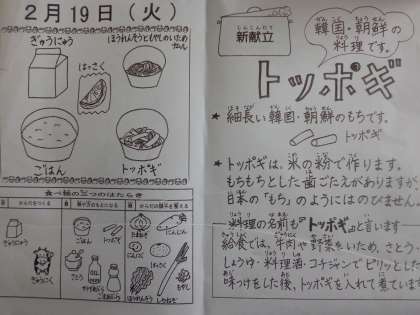 2月19日(火)
ぎゅうにゅう
ほうれんそうともやしのいため
はっさく
ごはん
トッポギ
食べ物の三つのはたらき
ぎゅうにゅう
ごはん
トッポギ
さとう
にんじん
にんにく
はっさく
もやし
ほうれんそう
新献立
しんこんだて
韓国・朝鮮の
料理です。
トッポギ
★細長い韓国・朝鮮のもちです。
トッポギ
★トッポギは、米の粉で作ります。
もちもちとした歯ごたえがありますが、
日本の「もち」のようにはのびません。
料理の名前も『トッポギ』と言います
給食では、牛肉や野菜をいため、さとう・
しょうゆ・料理酒・コチジャンでピリッとした
味つけをした後、トッポギを入れて煮ています